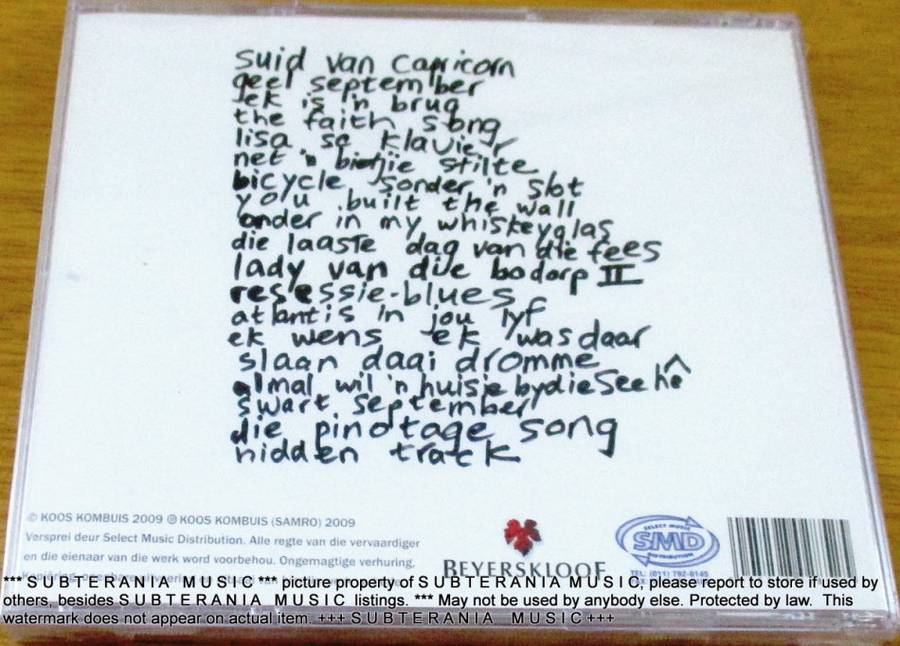 suid van capricorn
geel september
ek is 'n brug
the faith song
lisa se klavier
net 'n bietjie stilte
bicycle sonder 'n slot
you built the wall
onder in my whiskeyglas
die laaste dag van die fees
lady van die bodorp II
resessie-blues
atlantis in jou lyf
ek wens ek was daar
slaan daai dromme
almal wil 'n huisie by die see hê
swart september
die pinotage song
hidden track
© KOOS KOMBUIS 2009 ℗ KOOS KOMBUIS (SAMRO) 2009
Versprei deur Select Music Distribution. Alle regte van die vervaardiger
en die eienaar van die werk word voorbehou. Ongemagtige verhuring,
BEYERSKLOOF
SELECT MUSIC
SMD
DISTRIBUTION
TEL: (011) 792-8145
*** SUBTERANIA MUSIC *** picture property of SUBTERANIA MUSIC, please report to store if used by
others, besides SUBTERANIA MUSIC listings. *** May not be used by anybody else. Protected by law. This
watermark does not appear on actual item. +++ SUBTERANIA MUSIC +++